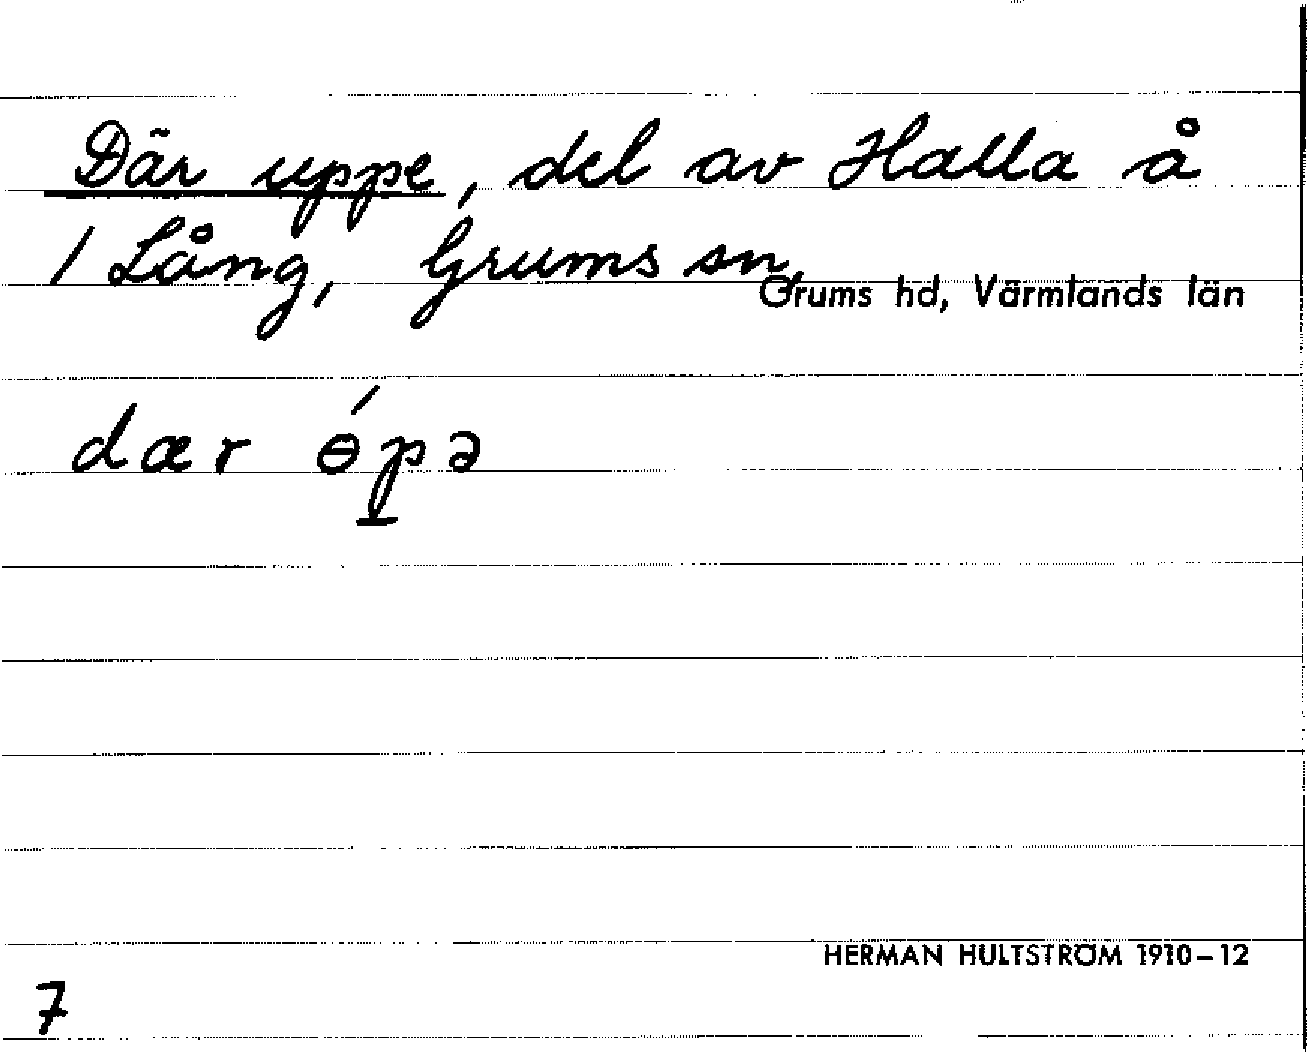 Där uppe, del av Halla å
/ Lång, Grums sn,
Grums hd, Värmlands län
dær ɵ́pə
HERMAN HULTSTRÖM 1910–12
7